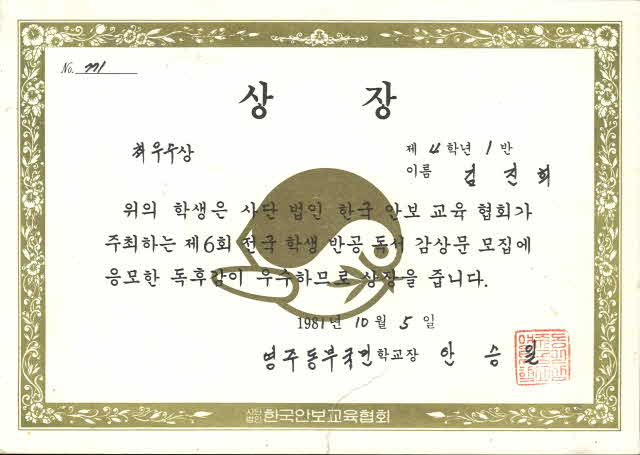 No. 771
상 장
최우수상
제 4 학년 1 반
이름 김진희
위의 학생은 사단 법인 한국 안보 교육 협회가
주최하는 제6회 전국 학생 반공 독서 감상문 모집에
응모한 독후감이 우수하므로 상장을 줍니다.
1981년 10월 5일
영주동부국민학교장 안승일
사단법인 한국안보교육협회